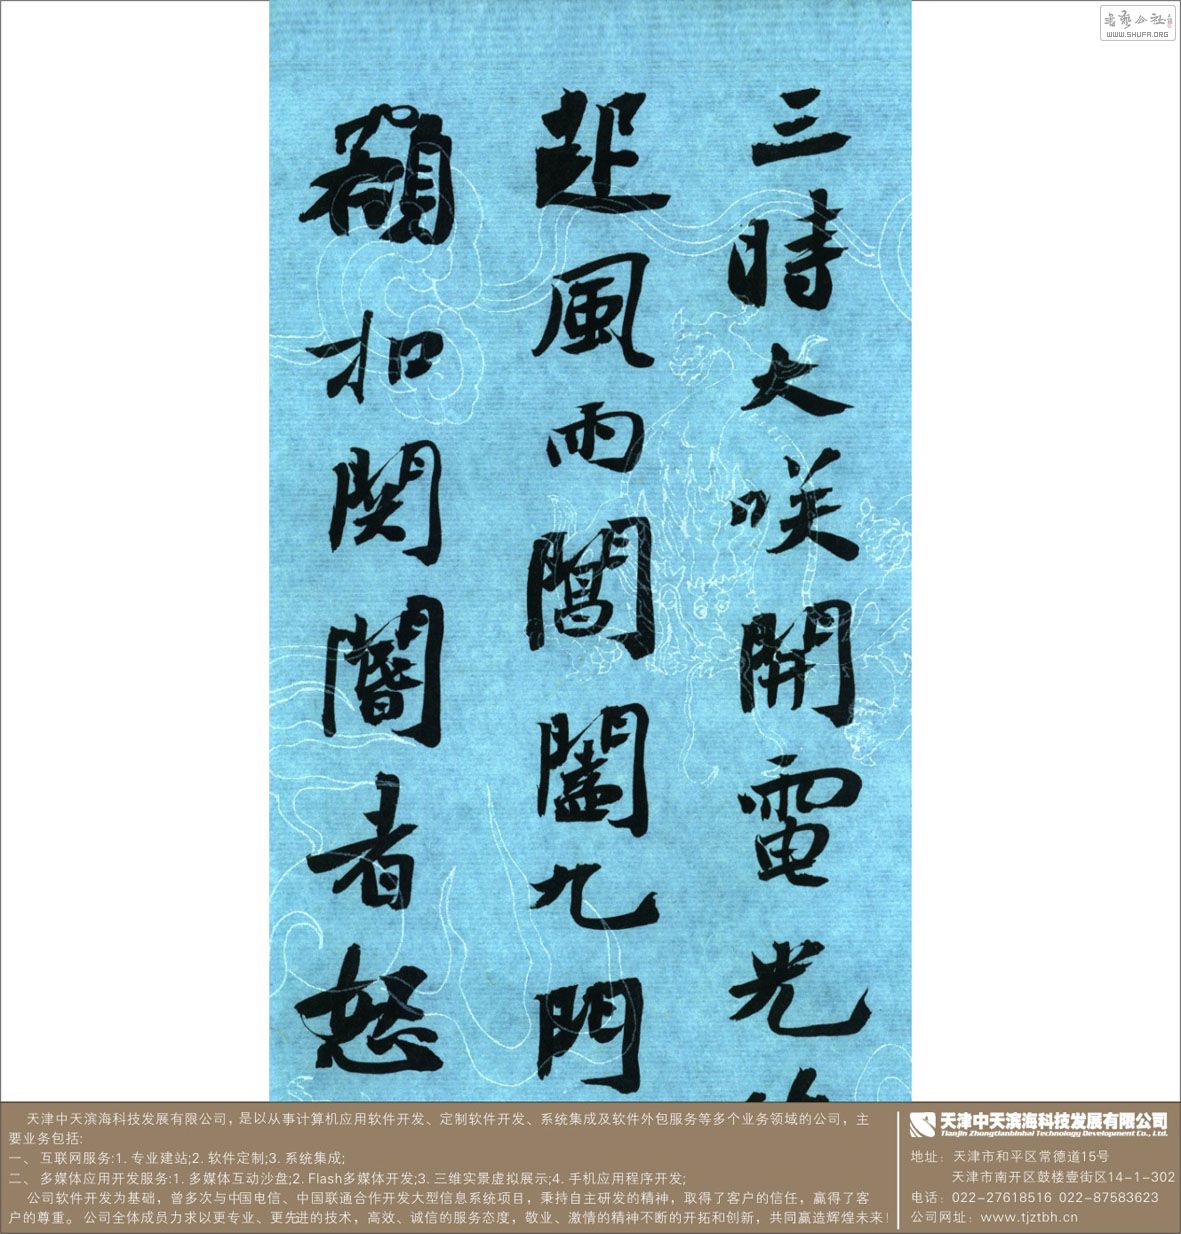 三時大咲開電光倏
起風雨閶闔九門
額扣関閽者怒
WWW.SHUFA.ORG
天津中天滨海科技发展有限公司，是以从事计算机应用软件开发、定制软件开发、系统集成及软件外包服务等多个业务领域的公司，主
要业务包括:
一、互联网服务:1.专业建站;2.软件定制;3.系统集成;
二、多媒体应用开发服务:1.多媒体互动沙盘;2.Flash多媒体开发;3.三维实景虚拟展示;4.手机应用程序开发;
公司软件开发为基础，曾多次与中国电信、中国联通合作开发大型信息系统项目，秉持自主研发的精神，取得了客户的信任，赢得了客
户的尊重。公司全体成员力求以更专业、更先进的技术，高效、诚信的服务态度，敬业、激情的精神不断的开拓和创新，共同赢造辉煌未来!
天津中天滨海科技发展有限公司
Tianjin Zhongtianbinhai Technology Development Co., Ltd.
地址：天津市和平区常德道15号
天津市南开区鼓楼壹街区14-1-302
电话：022-27618516 022-87583623
公司网址：www.tjztbh.cn